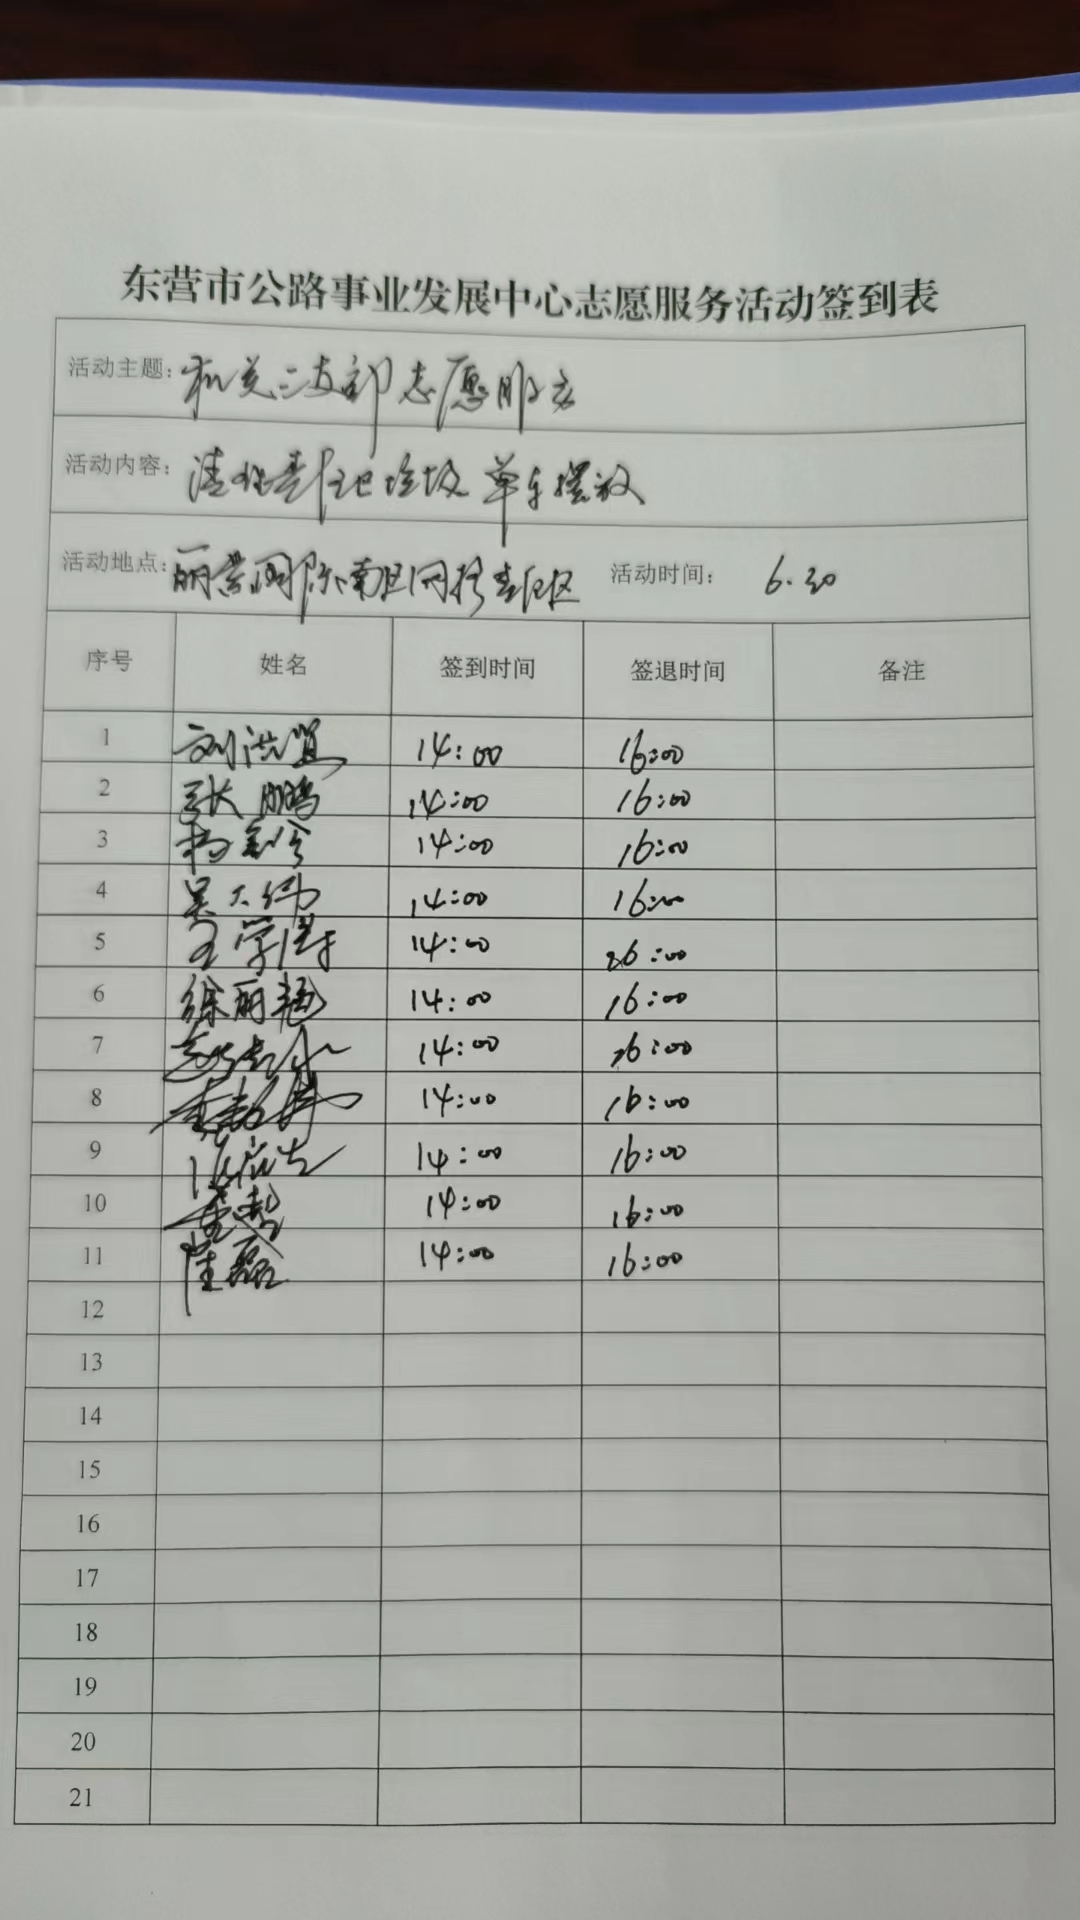 东营市公路事业发展中心志愿服务活动签到表
活动主题：机关二支部志愿服务
活动内容：清理责任区垃圾 单车摆放
活动地点：丽景国际南区网格责任区 活动时间： 6.30
序号 姓名 签到时间 签退时间 备注
1 刘洪 14:00 16:00
2 张鹏 14:00 16:00
3 杨 14:00 16:00
4 吴大伟 14:00 16:00
5 王学 14:00 16:00
6 徐丽艳 14:00 16:00
7 14:00 16:00
8 李 14:00 16:00
9 14:00 16:00
10 14:00 16:00
11 崔磊 14:00 16:00
12
13
14
15
16
17
18
19
20
21